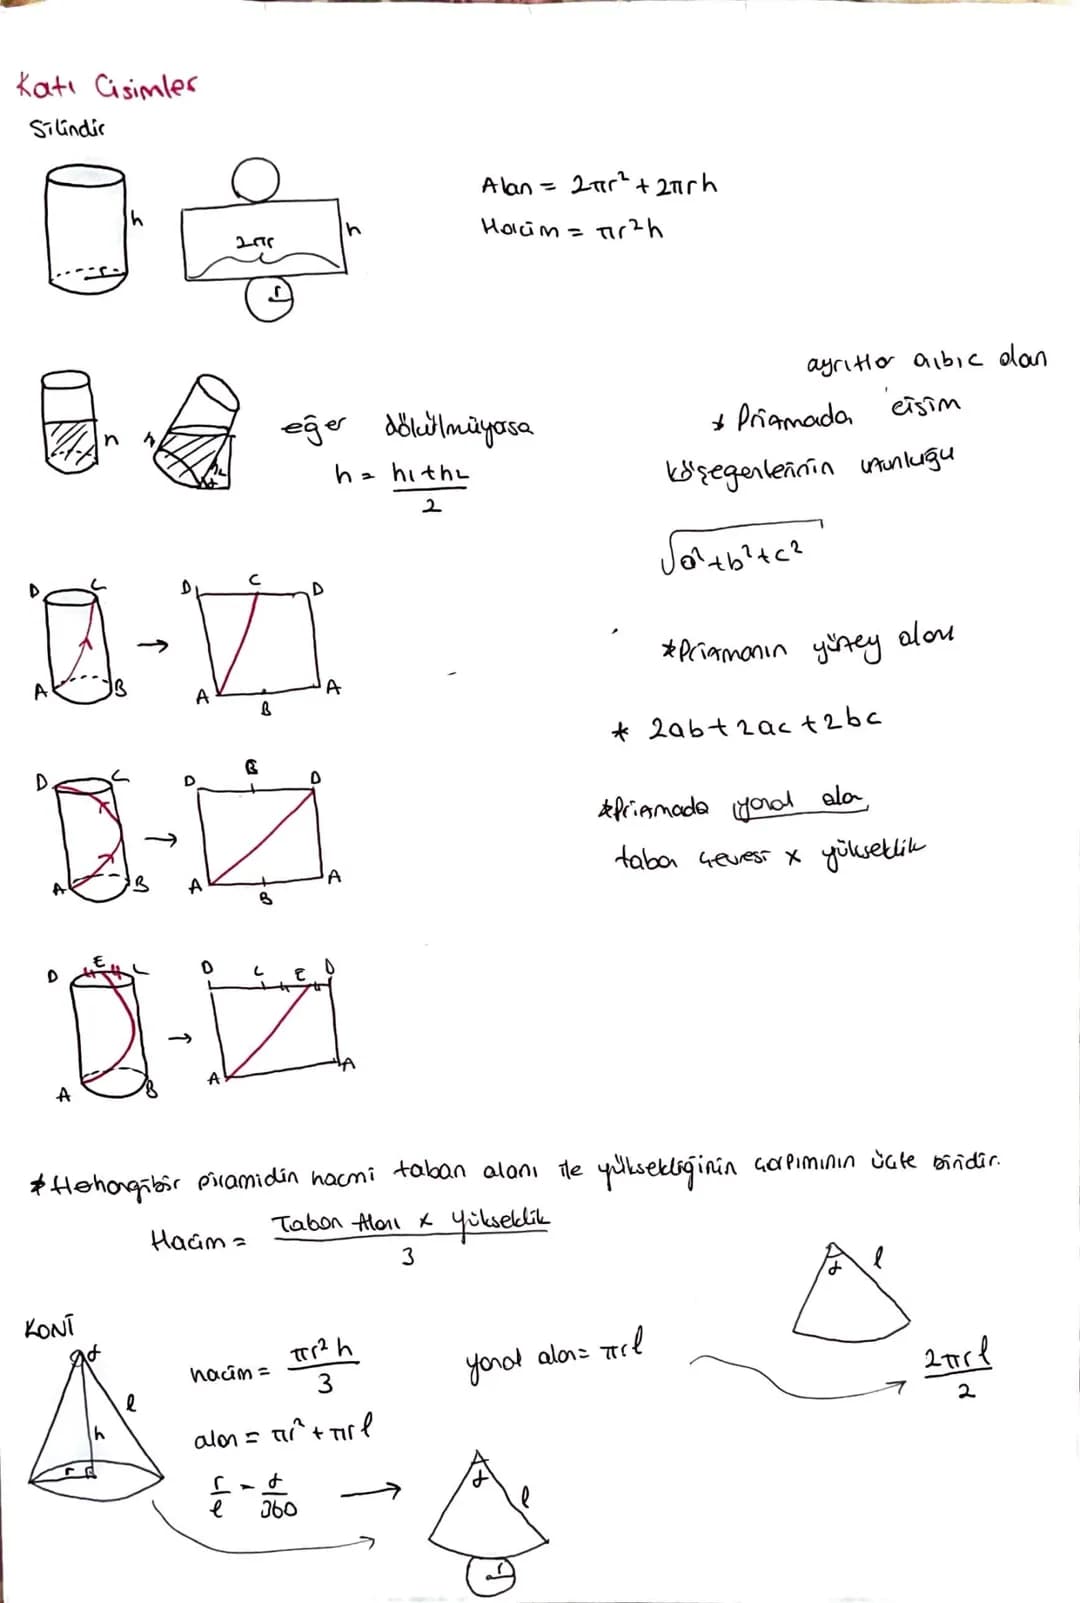 Katı Cisimler
Silindir
h
2πr
h
r
r
Alan = 2πr² + 2πrh
Hacim = πr²h
h
eğer dökülmüyosa
h = h₁+h₂
2
ayrıtlar a,b,c olan
* Prizmada cisim
köşegenlerinin uzunluğu
√a²+b²+c²
D C → D C D
A B A B A
*Prizmanın yüzey alanı
* 2ab+2ac+2bc
D C → D B D
A B A B A
*Prizmada yanal alan
taban çevresi x yükseklik
D E C → D C E D
A B A A
* Herhangibir piramidin hacmi taban alanı ile yüksekliğinin çarpımının üçte biridir.
Hacim = Taban Alanı x yükseklik
3
KONİ
α
l
h
r
hacim = πr²h
3
yanal alan = πrl
α l
→ 2πrl
2
alan = πr² + πrl
r = α
l 360
→
α
l
r